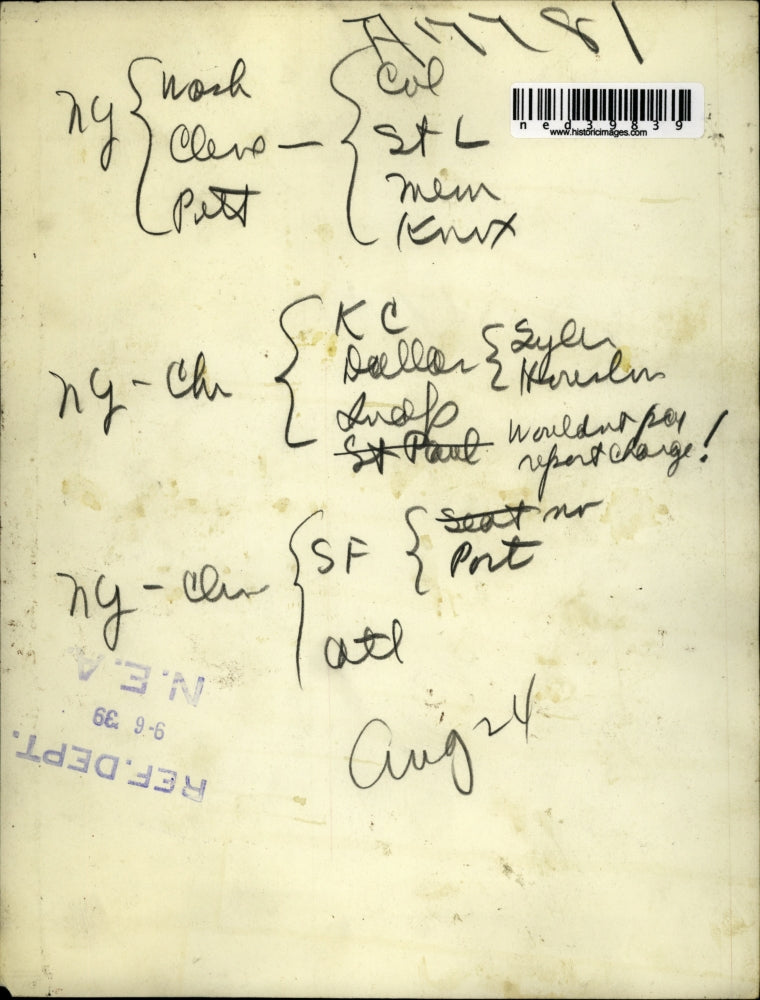 A17781
NY { Wash { Col
Cleve — St L
Pitt Mem
Knox
ned39839
www.historicimages.com
NY - Chi { K C
Dallas { Tyler
Houston
Indp
St Paul Wouldnt pay
report charge!
NY - Clev { SF { Seat no
Port
Atl
Aug 24
N.E.A
9-6 39
REF. DEPT.